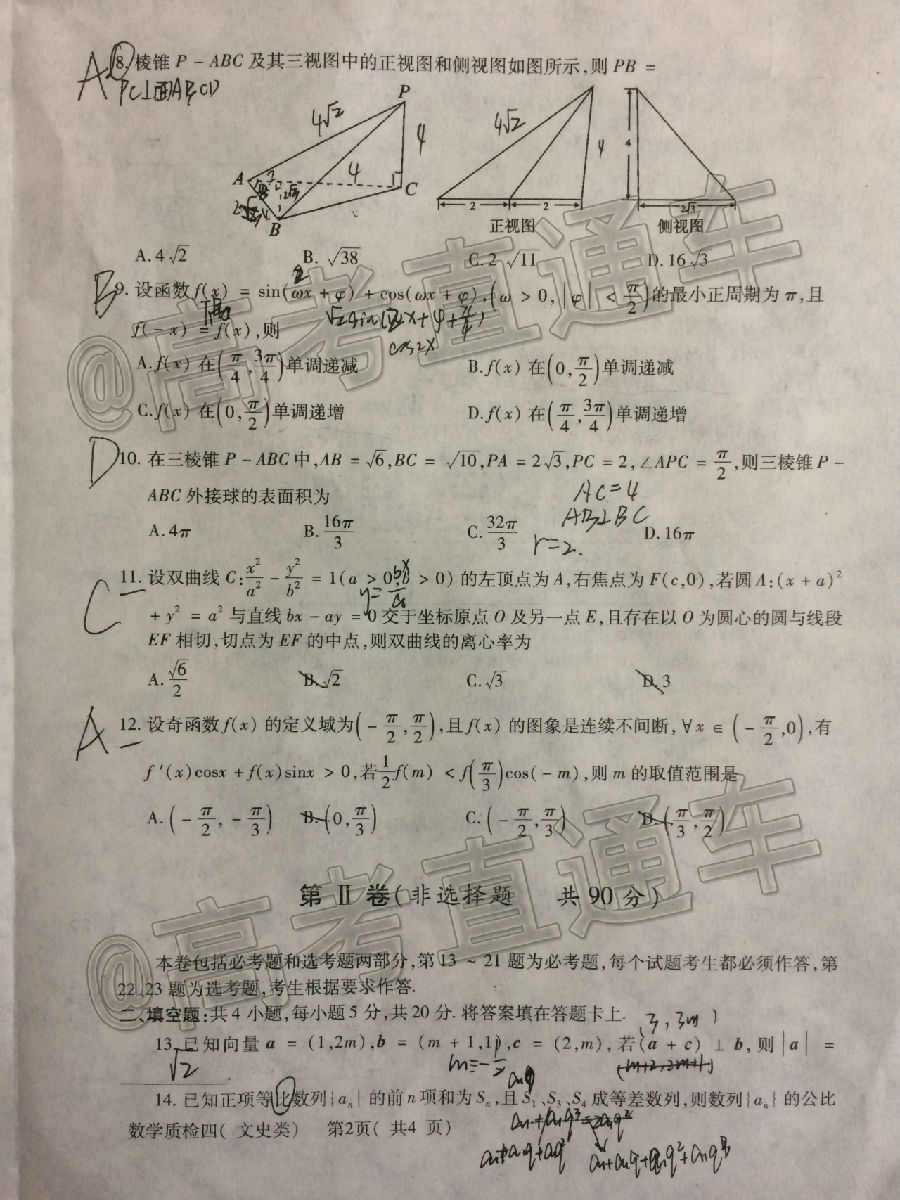 A 8. 棱锥 P - ABC 及其三视图中的正视图和侧视图如图所示,则 PB =
PC⊥面ABCD
4√2 P 4 4 A C B
4√2 4 2 2 正视图
4 2√3 侧视图
A. 4√2 B. √38 C. 2√11 D. 16√3
B 9. 设函数 f(x) = sin(ωx + φ) + cos(ωx + φ), (ω > 0, |φ| < π/2) 的最小正周期为 π,且
2
偶 √2 sin(2x + φ + π/4)
f(-x) = f(x),则
cos2x
A. f(x) 在(π/4, 3π/4)单调递减 B. f(x) 在(0, π/2)单调递减
C. f(x) 在(0, π/2)单调递增 D. f(x) 在(π/4, 3π/4)单调递增
D 10. 在三棱锥 P - ABC 中, AB = √6, BC = √10, PA = 2√3, PC = 2, ∠APC = π/2, 则三棱锥 P -
AC=4
ABC 外接球的表面积为
AB⊥BC
A. 4π B. 16π/3 C. 32π/3 D. 16π
r=2.
C 11. 设双曲线 C: x²/a² - y²/b² = 1(a > 0, b > 0) 的左顶点为 A,右焦点为 F(c,0),若圆 A:(x + a)²
y=bx/a
+ y² = a² 与直线 bx - ay = 0 交于坐标原点 O 及另一点 E,且存在以 O 为圆心的圆与线段
EF 相切,切点为 EF 的中点,则双曲线的离心率为
A. √6/2 B. √2 C. √3 D. 3
A 12. 设奇函数 f(x) 的定义域为(-π/2, π/2),且 f(x) 的图象是连续不间断, ∀x ∈ (-π/2, 0),有
f′(x)cosx + f(x)sinx > 0,若 1/2 f(m) < f(π/3)cos(-m),则 m 的取值范围是
A. (-π/2, -π/3) B. (0, π/3) C. (-π/2, π/3) D. (π/3, π/2)
第 Ⅱ 卷(非选择题 共 90 分)
本卷包括必考题和选考题两部分,第 13 ~ 21 题为必考题,每个试题考生都必须作答,第
22、23 题为选考题,考生根据要求作答.
二、填空题:共 4 小题,每小题 5 分,共 20 分. 将答案填在答题卡上.
(3, 3m)
13. 已知向量 a = (1,2m), b = (m + 1,1), c = (2,m),若(a + c) ⊥ b,则 |a| =
√2 m=-1/2 (m+2, 2m+1)
14. 已知正项等比数列{aₙ} 的前 n 项和为 Sₙ,且 S₁、S₃、S₄ 成等差数列,则数列{aₙ} 的公比
数学质检四( 文史类) 第2页( 共4 页)
@高考直通车
@高考直通车